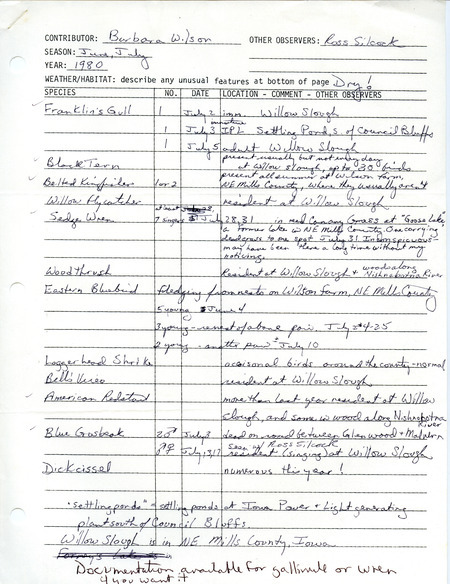 CONTRIBUTOR: Barbara Wilson OTHER OBSERVERS: Ross Silcock
SEASON: June, July
YEAR: 1980
WEATHER/HABITAT: describe any unusual features at bottom of page Dry!
SPECIES NO. DATE LOCATION - COMMENT - OTHER OBSERVERS
Franklin's Gull 1 July 2 imm. Willow Slough
immature
1 July 3 IPL Settling Ponds, S. of Council Bluffs
1 July 5 adult Willow Slough
Black Tern present usually but not every day
at Willow Slough, up to 30 birds
Belted Kingfisher 1 or 2 present all summer at Wilson farm,
NE Mills County, where they usually aren't
Willow Flycatcher resident at Willow Slough
Sedge Wren at least 7 singers July 28, 31 in reed Canary Grass at "Goose Lake"
a former lake in NE Mills County. One carrying
dead grass to one spot July 31. Inconspicuous -
may have been there a long time without my
noticing.
Wood Thrush Resident at Willow Slough & woods along Nishnabotna River
Eastern Bluebird fledging from nests on Wilson farm, NE Mills County
5 young June 4
3 young - renest of above pair. July 24-25
2 young - another pair July 10
Loggerhead Shrike occasional birds around the county - normal
Bell's Vireo resident at Willow Slough
American Redstart more than last year resident at Willow
Slough, and some in woods along Nishnabotna
River
Blue Grosbeak 2♂ July 3 dead on road between Glenwood & Malvern
seen by Ross Silcock
July 13, 17 resident (singing) at Willow Slough
Dickcissel numerous this year!
"settling ponds" = settling ponds at Iowa Power & Light generating
plant south of Council Bluffs.
Willow Slough is in NE Mills County, Iowa
Documentation available for gallinule or wren
if you want it